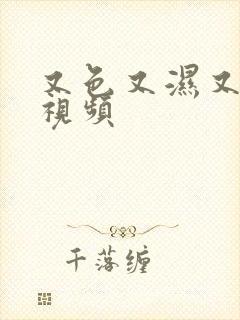 又色又濕又
視頻
千落缠